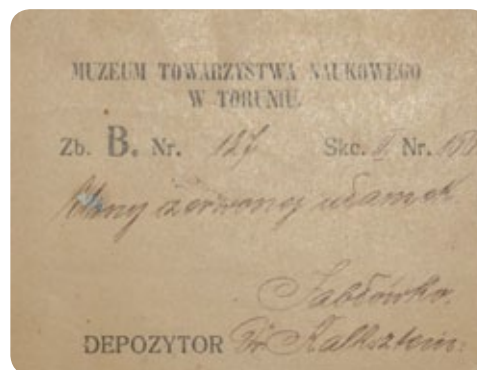 MUZEUM TOWARZYSTWA NAUKOWEGO
W TORUNIU.
Zb. B. Nr. 127 Skc. II Nr.
czerwonej ułamek
Jabłówko.
DEPOZYTOR Dr Kalkstein.